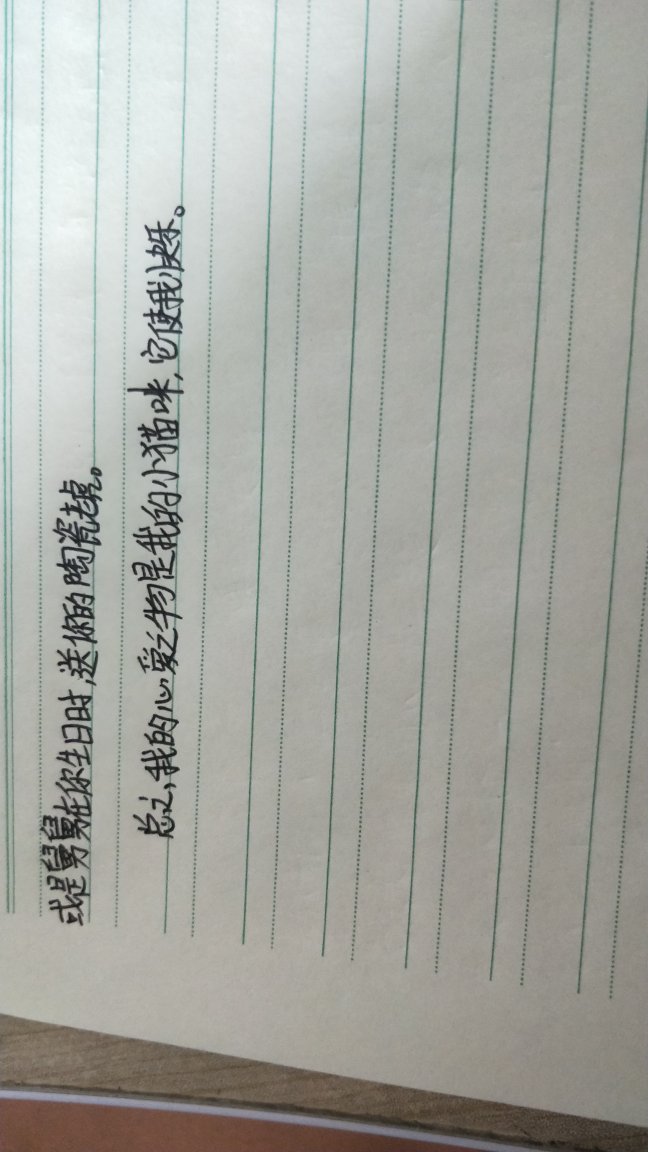 或是舅舅在你生日时,送你的陶瓷老虎。
总之,我的心爱之物是我的小猫咪,它使我快乐。